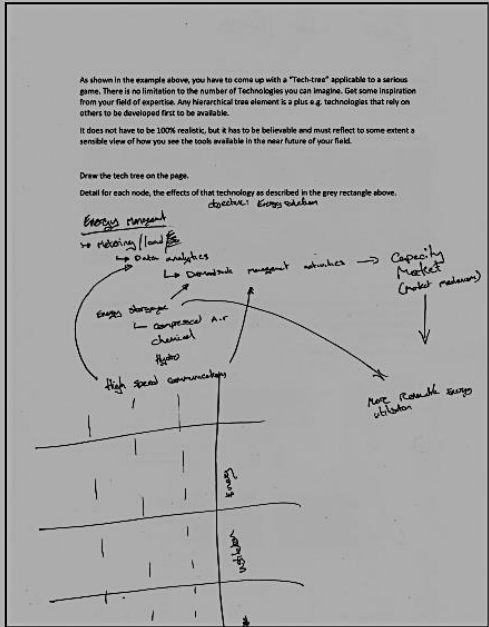 As shown in the example above, you have to come up with a "Tech-tree" applicable to a serious
game. There is no limitation to the number of Technologies you can imagine. Get some inspiration
from your field of expertise. Any hierarchical tree element is a plus e.g. technologies that rely on
others to be developed first to be available.
It does not have to be 100% realistic, but it has to be believable and must reflect to some extent a
sensible view of how you see the tools available in the near future of your field.
Drew the tech tree on the page.
Detail for each node, the effects of that technology as described in the grey rectangle above.
objective: Energy
Energy Managment
Metering / load
Data analytics
management activities
Capacity
Market
(market mechanism)
Energy storage
compressed Air
chemical
Hydro
High speed communications
More Renewable Energy
utilisation